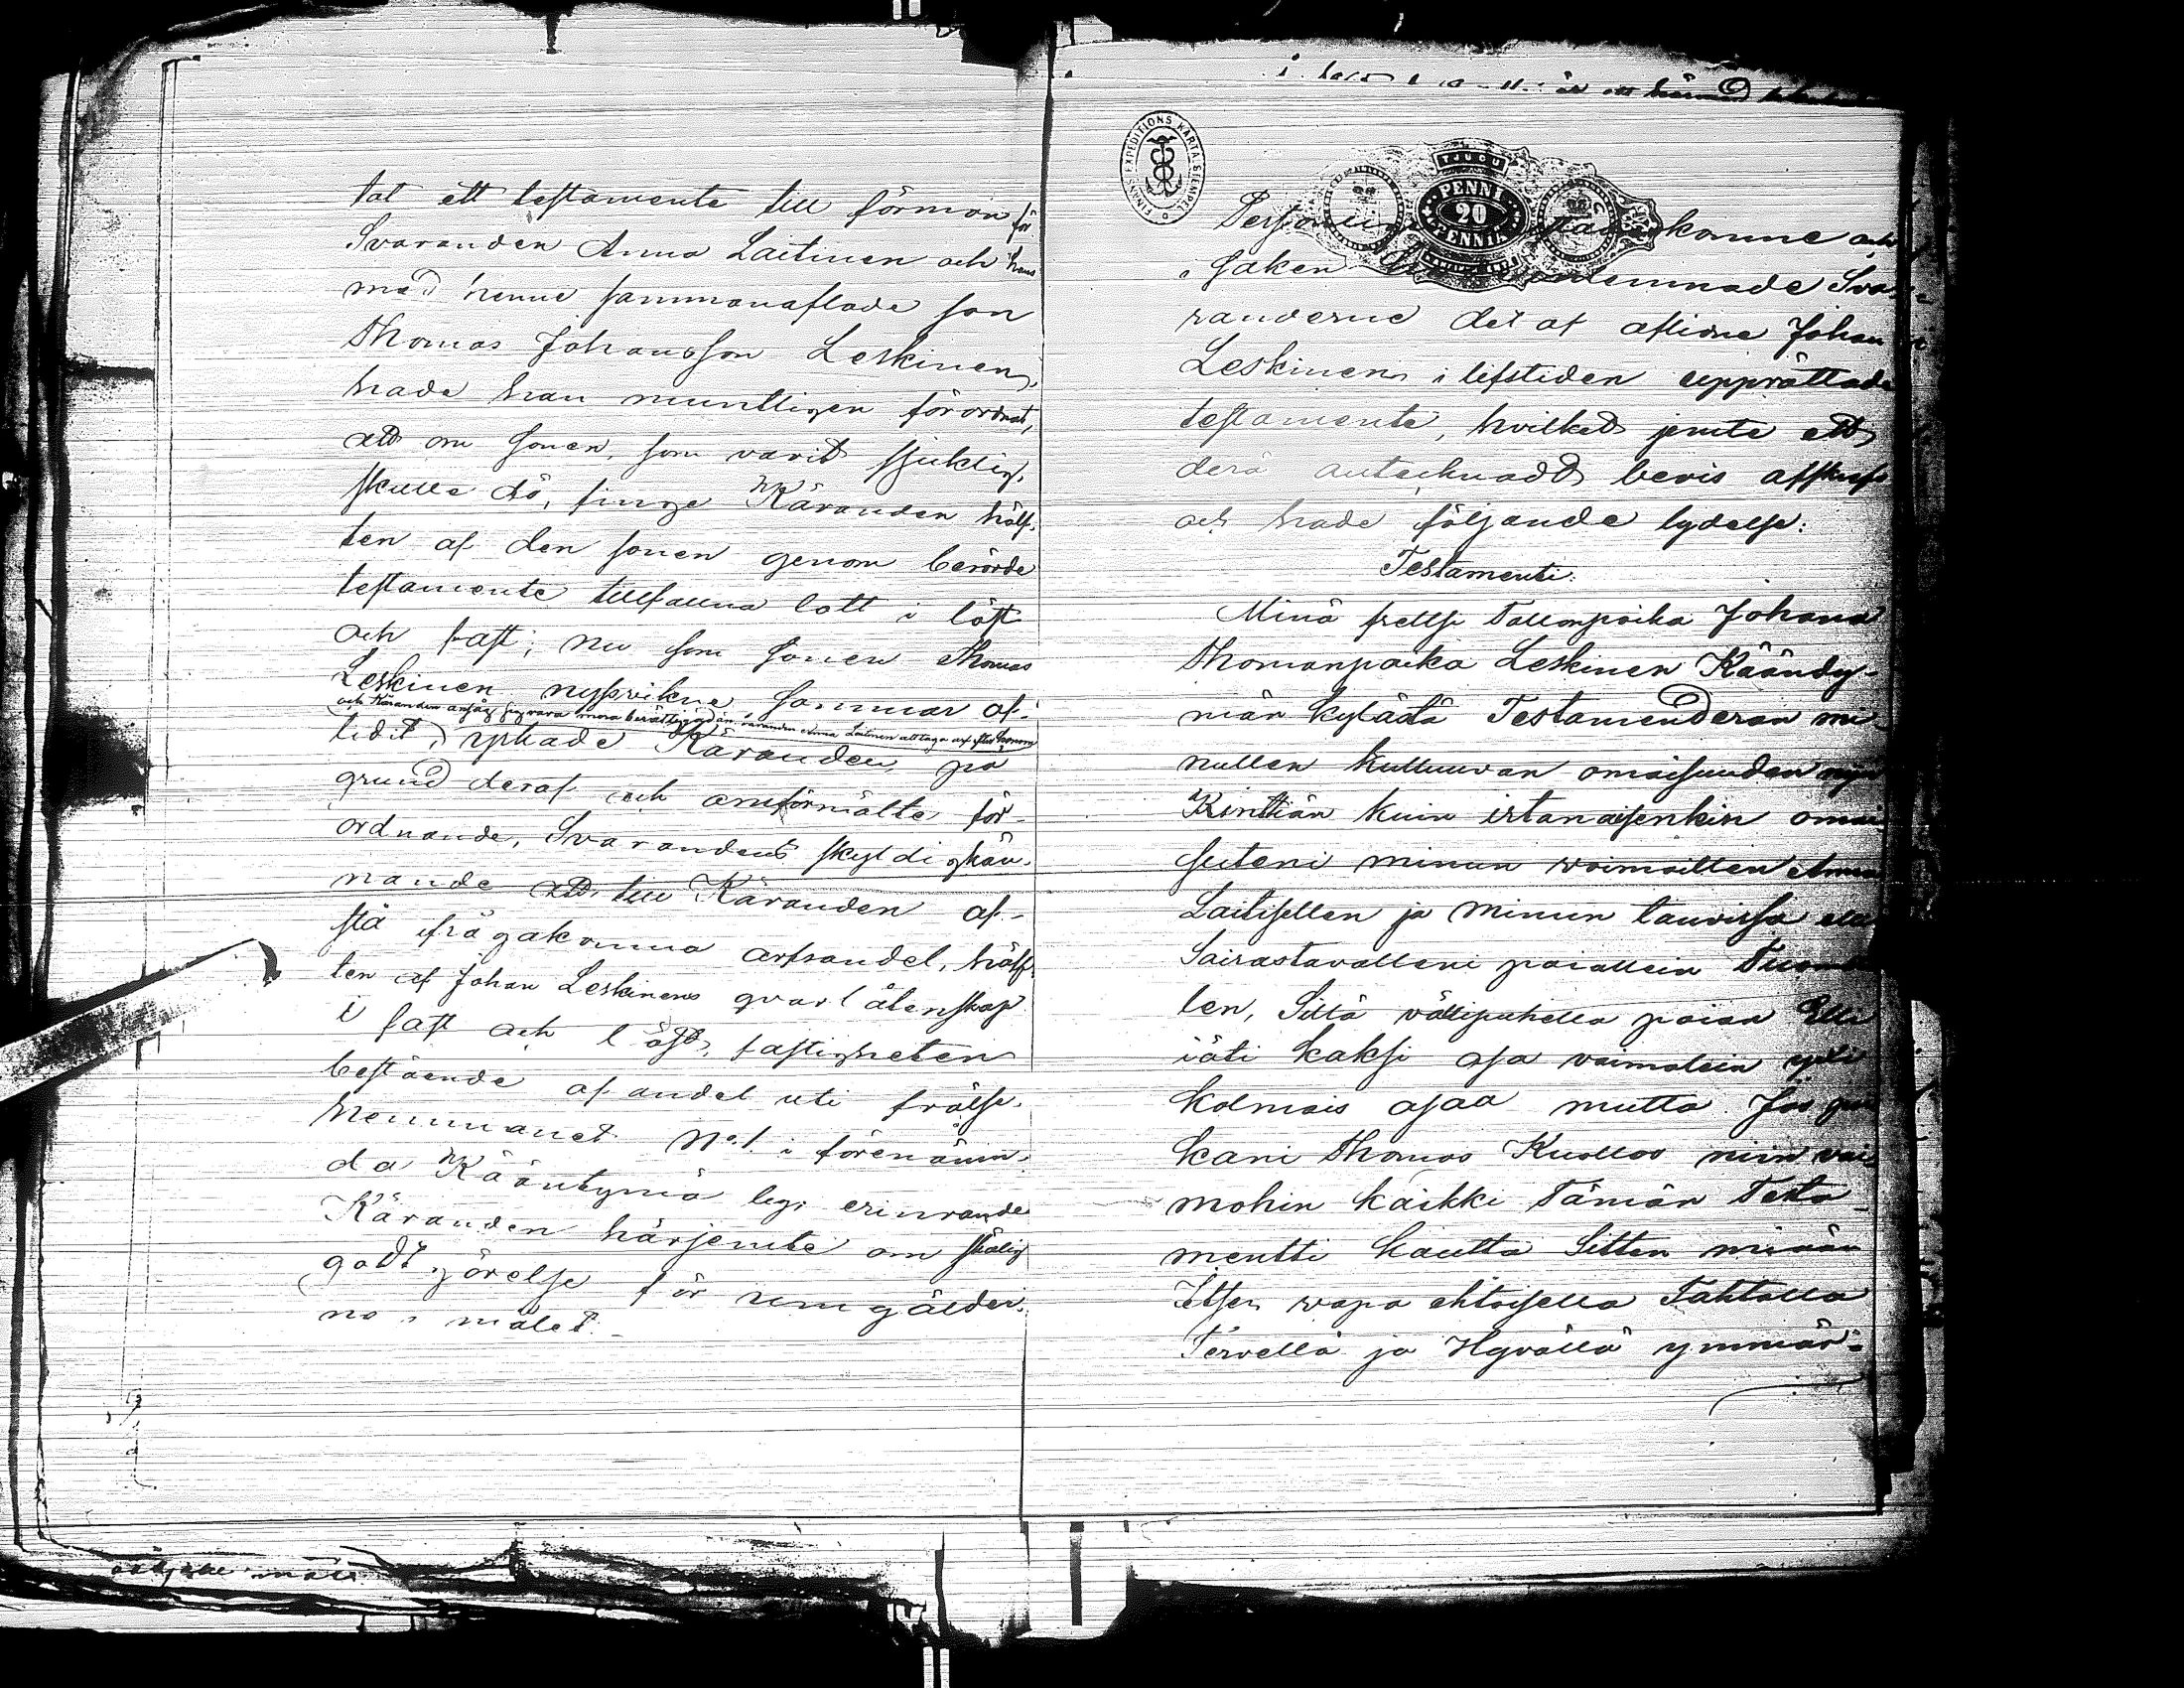 tat ett testamente till förmån för
Svaranden Anna Laitinen och hans
med henne sammanaflade son
Thomas Johansson Leskinen,
hade han muntligen förordnat,
att om sonen, som varit sjuklig,
skulle dö, finge Käranden hälf-
ten af den sonen genom berörde
testamente tillfallna lott i löst
och fast; nu som sonen Thomas
Leskinen nyssvikne Januar af-
och Käranden ansåg sig vara mera berättigad än svaranden Anna Laitinen att taga arf efter honom
lidit, yrkade Käranden, på
grund deraf och omförmälte för-
ordnande, Svarandens skyldigkän-
nande att till Käranden af-
stå ifrågakomna arfsandel, hälf-
ten af Johan Leskinens qvarlåtenskap
i fast och löst, fastigheten
bestående af andel uti frälse-
hemmanet No 1 i förenämn-
da Kääntymä by; erinrande
Käranden härjemte om skälig
godtgörelse för sina gälder
na i målet.
FINANS EXPEDITIONS KARTA SIGILL STEMPEL
TJUGU
PENNI
20
PENNIÄ
komne och
i saken Sva-
randerne det af aflidne Johan
Leskinen i lifstiden upprättade
testamente, hvilket jemte ett
derå antecknadt bevis
och hade följande lydelse:
Testamenti:
Minä frellsi Tallonpoika Johana
Thomanpoika Leskinen Käändy-
män kylästä Testamenderan mi-
nullen kulluuvan omaisuuden niin
Kinttiän kuin irtanaisenkin omai
suteni minun voimaillen Anna
Laitisellen ja minun tauvissa
Sairastavalleni poiallein Tuoma
len, Sillä välipuhella poian Elle
iäti kaksi osa vaimolein yxi
kolmais osaa mutta Jos poi
kani Thomas Kuollos niin vai
mohin kaikki Tämän Testa-
mentti kautta Sitten minän
Itsen vapa ehtoisella Tahtolla
Tervellä ja Hyvällä ymmär-